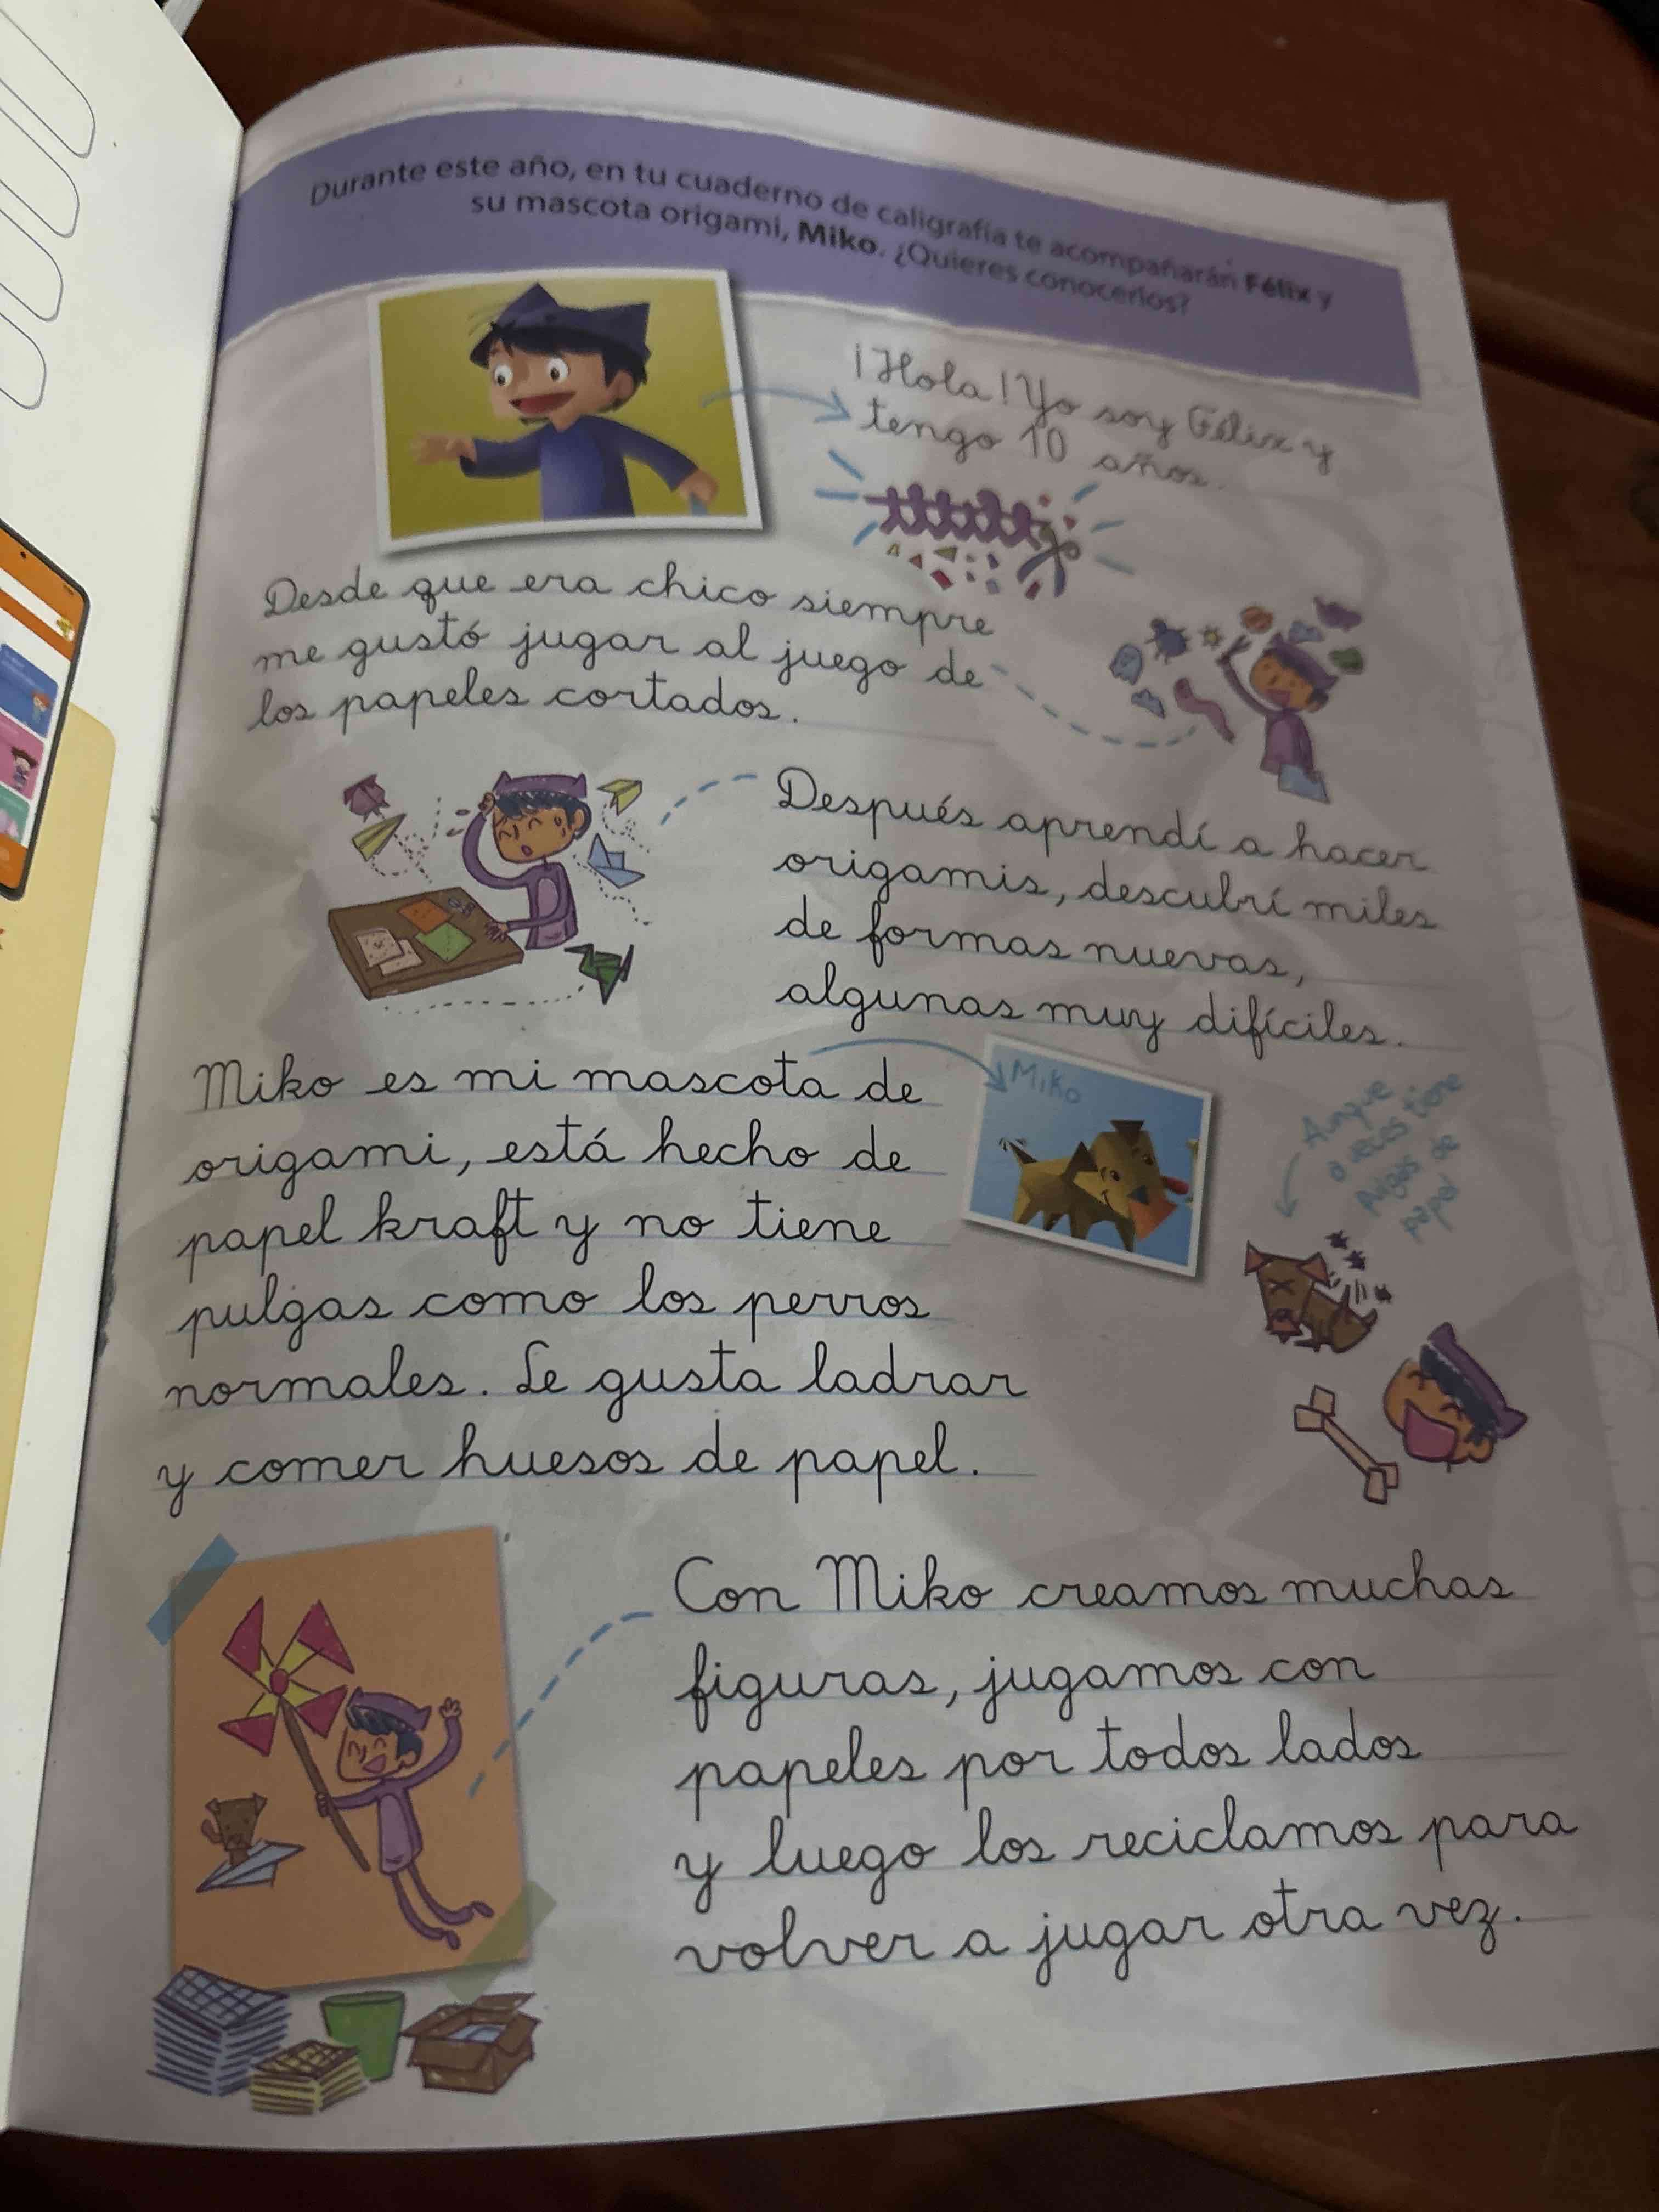 Durante este año, en tu cuaderno de caligrafía te acompañarán Félix y
su mascota origami, Miko. ¿Quieres conocerlos?
¡Hola! Yo soy Félix y
tengo 10 años.
Desde que era chico siempre
me gustó jugar al juego de
los papeles cortados.
Después aprendí a hacer
origamis, descubrí miles
de formas nuevas,
algunas muy difíciles.
Miko es mi mascota de
origami, está hecho de
papel kraft y no tiene
pulgas como los perros
normales. Le gusta ladrar
y comer huesos de papel.
Miko
Aunque
a veces tiene
pulgas de
papel
Con Miko creamos muchas
figuras, jugamos con
papeles por todos lados
y luego los reciclamos para
volver a jugar otra vez.